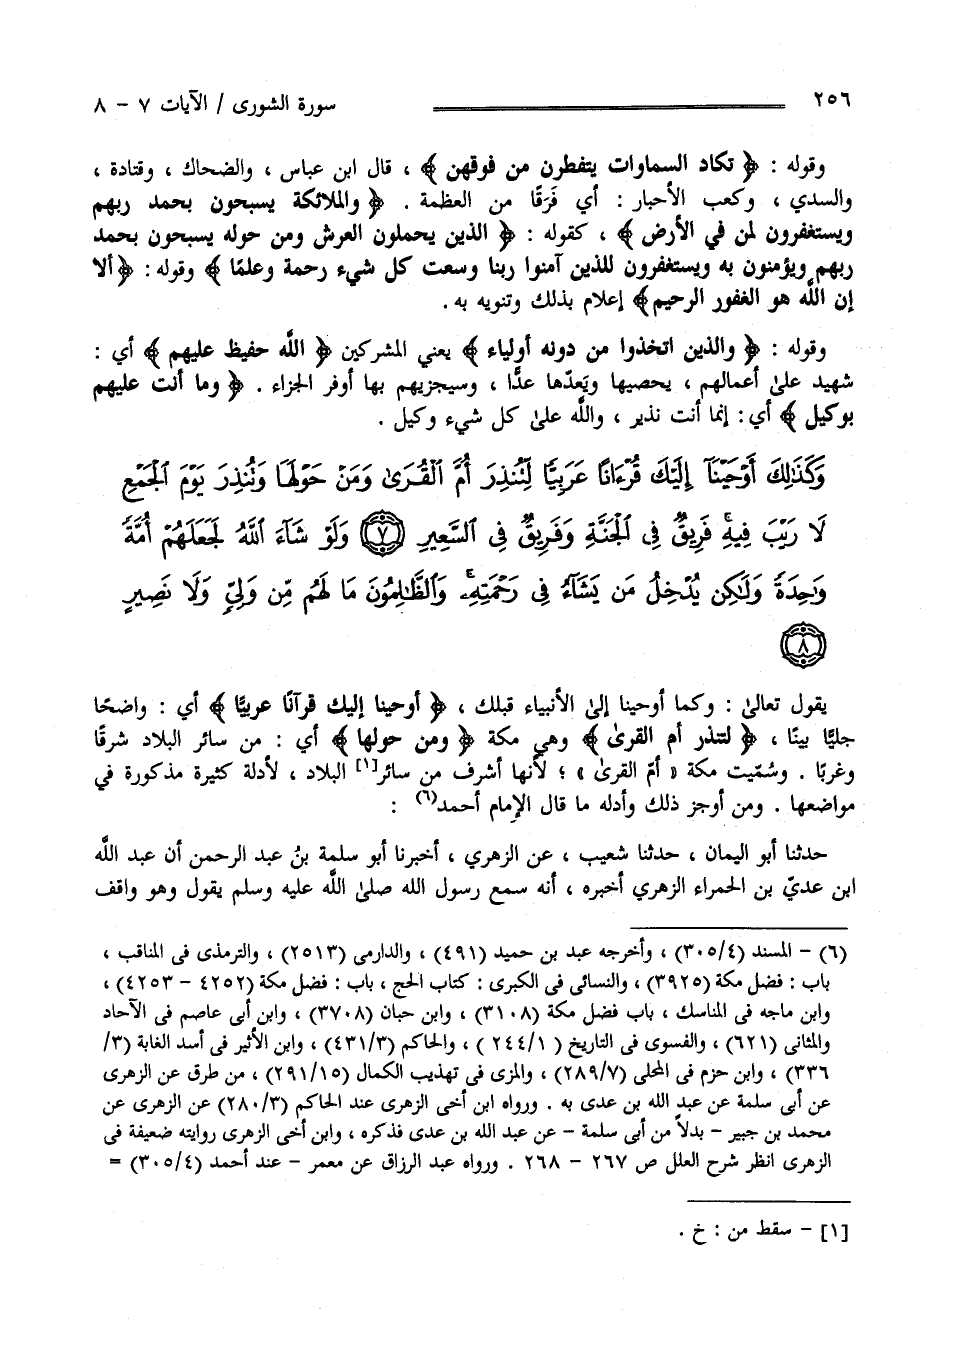 ٢٥٦ سورة الشورى / الآيات ٧ - ٨
وقوله : ﴿ تكاد السماوات يتفطرن من فوقهن ﴾ ، قال ابن عباس ، والضحاك ، وقتادة ،
والسدي ، وكعب الأحبار : أي فَرَقًا من العظمة . ﴿ والملائكة يسبحون بحمد ربهم
ويستغفرون لمن في الأرض ﴾ ، كقوله : ﴿ الذين يحملون العرش ومن حوله يسبحون بحمد
ربهم ويؤمنون به ويستغفرون للذين آمنوا ربنا وسعت كل شيء رحمة وعلمًا ﴾ وقوله : ﴿ ألا
إن اللَّه هو الغفور الرحيم ﴾ إعلام بذلك وتنويه به .
وقوله : ﴿ والذين اتخذوا من دونه أولياء ﴾ يعني المشركين ﴿ اللَّه حفيظ عليهم ﴾ أي :
شهيد علىٰ أعمالهم ، يحصيها ويَعدّها عدًّا ، وسيجزيهم بها أوفر الجزاء . ﴿ وما أنت عليهم
بوكيل ﴾ أي : إنما أنت نذير ، واللَّه علىٰ كل شيء وكيل .
وَكَذَٰلِكَ أَوْحَيْنَآ إِلَيْكَ قُرْءَانًا عَرَبِيًّا لِّنُنذِرَ أُمَّ ٱلْقُرَىٰ وَمَنْ حَوْلَهَا وَنُنذِرَ يَوْمَ ٱلْجَمْعِ
لَا رَيْبَ فِيهِ ۚ فَرِيقٌ فِى ٱلْجَنَّةِ وَفَرِيقٌ فِى ٱلسَّعِيرِ ٧ وَلَوْ شَآءَ ٱللَّهُ لَجَعَلَهُمْ أُمَّةً
وَٰحِدَةً وَلَٰكِن يُدْخِلُ مَن يَشَآءُ فِى رَحْمَتِهِۦ ۚ وَٱلظَّٰلِمُونَ مَا لَهُم مِّن وَلِىٍّ وَلَا نَصِيرٍ
٨
يقول تعالىٰ : وكما أوحينا إلىٰ الأنبياء قبلك ، ﴿ أوحينا إليك قرآنًا عربيًّا ﴾ أي : واضحًا
جليًّا بينًا ، ﴿ لتنذر أم القرىٰ ﴾ وهي مكة ﴿ ومن حولها ﴾ أي : من سائر البلاد شرقًا
وغربًا . وسُمّيت مكة « أمّ القرىٰ » ؛ لأنها أشرف من سائر[١] البلاد ، لأدلة كثيرة مذكورة في
مواضعها . ومن أوجز ذلك وأدله ما قال الإمام أحمد(٦) :
حدثنا أبو اليمان ، حدثنا شعيب ، عن الزهري ، أخبرنا أبو سلمة بنُ عبد الرحمن أن عبد اللَّه
ابن عديّ بن الحمراء الزهري أخبره ، أنه سمع رسول الله صلىٰ اللَّه عليه وسلم يقول وهو واقف
(٦) - المسند (٣٠٥/٤) ، وأخرجه عبد بن حميد (٤٩١) ، والدارمى (٢٥١٣) ، والترمذى فى المناقب ،
باب : فضل مكة (٣٩٢٥) ، والنسائى فى الكبرى : كتاب الحج ، باب : فضل مكة (٤٢٥٢ - ٤٢٥٣) ،
وابن ماجه فى المناسك ، باب فضل مكة (٣١٠٨) ، وابن حبان (٣٧٠٨) ، وابن أبى عاصم فى الآحاد
والمثانى (٦٢١) ، والفسوى فى التاريخ ( ٢٤٤/١ ) ، والحاكم (٤٣١/٣) ، وابن الأثير فى أسد الغابة (٣/
٣٣٦) ، وابن حزم فى المحلى (٢٨٩/٧) ، والمزى فى تهذيب الكمال (٢٩١/١٥) ، من طرق عن الزهرى
عن أبى سلمة عن عبد الله بن عدى به . ورواه ابن أخى الزهرى عند الحاكم (٢٨٠/٣) عن الزهرى عن
محمد بن جبير - بدلاً من أبى سلمة - عن عبد الله بن عدى فذكره ، وابن أخى الزهرى روايته ضعيفة فى
الزهرى انظر شرح العلل ص ٢٦٧ - ٢٦٨ . ورواه عبد الرزاق عن معمر - عند أحمد (٣٠٥/٤) =
[١] - سقط من : خ .